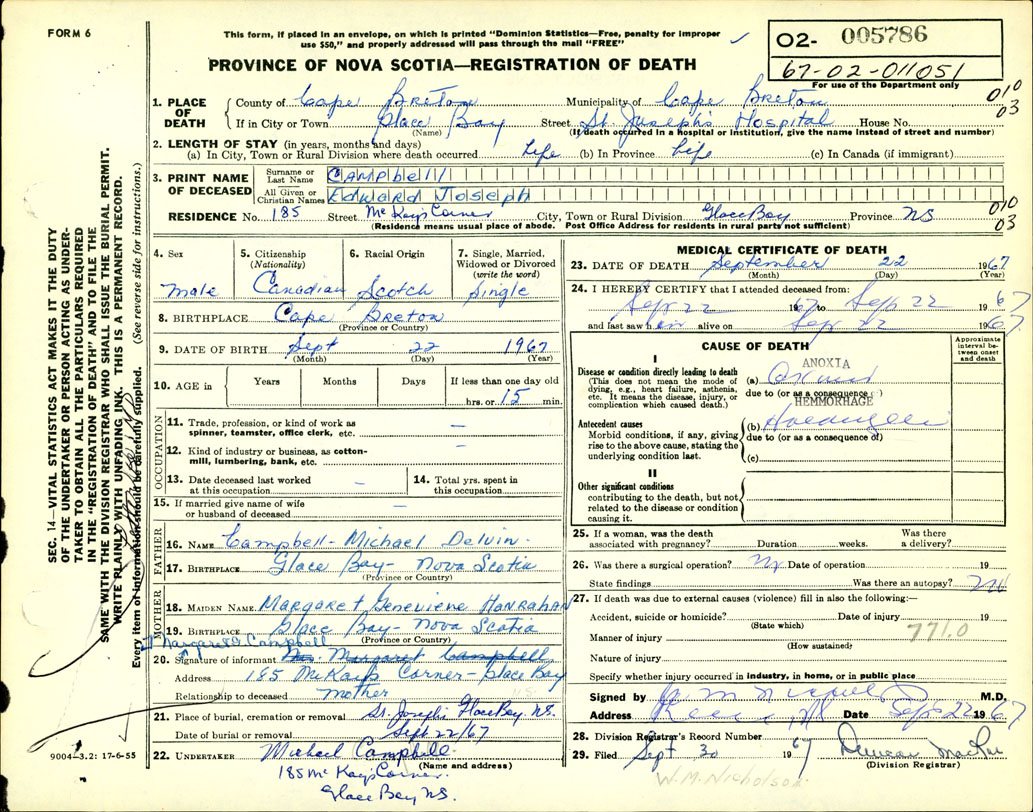 FORM 6
This form, if placed in an envelope, on which is printed "Dominion Statistics—Free, penalty for improper
use $50," and properly addressed will pass through the mail "FREE"
02- 005786
67-02-011051
For use of the Department only
PROVINCE OF NOVA SCOTIA—REGISTRATION OF DEATH
1. PLACE OF DEATH County of Cape Breton Municipality of Cape Breton 010
If in City or Town Glace Bay Street St. Joseph's Hospital House No. 03
(Name) (If death occurred in a hospital or institution, give the name instead of street and number)
2. LENGTH OF STAY (in years, months and days)
(a) In City, Town or Rural Division where death occurred Life (b) In Province Life (c) In Canada (if immigrant)
3. PRINT NAME OF DECEASED
Surname or Last Name Campbell
All Given or Christian Names Edward Joseph
RESIDENCE No. 185 Street McKay's Corner City, Town or Rural Division Glace Bay Province NS 010
(Residence means usual place of abode. Post Office Address for residents in rural parts not sufficient) 03
4. Sex
male
5. Citizenship
(Nationality)
Canadian
6. Racial Origin
Scotch
7. Single, Married,
Widowed or Divorced
(write the word)
Single
8. BIRTHPLACE Cape Breton
(Province or Country)
9. DATE OF BIRTH Sept 22 1967
(Month) (Day) (Year)
10. AGE in Years Months Days If less than one day old
hrs. or 15 min.
OCCUPATION
11. Trade, profession, or kind of work as
spinner, teamster, office clerk, etc. —
12. Kind of industry or business, as cotton-
mill, lumbering, bank, etc. —
13. Date deceased last worked
at this occupation —
14. Total yrs. spent in
this occupation
15. If married give name of wife
or husband of deceased —
FATHER
16. NAME Campbell - Michael Delvin
17. BIRTHPLACE Glace Bay - Nova Scotia
(Province or Country)
MOTHER
18. MAIDEN NAME Margaret Genevieve Hanrahan
19. BIRTHPLACE Glace Bay - Nova Scotia
(Province or Country)
Margaret Campbell
20. Signature of informant Mrs. Margaret Campbell
Address 185 McKay's Corner - Glace Bay
Relationship to deceased mother
21. Place of burial, cremation or removal St. Joseph's Glace Bay NS.
Date of burial or removal Sept. 22/67
22. UNDERTAKER Michael Campbell
(Name and address)
185 McKay's Corner.
Glace Bay NS.
MEDICAL CERTIFICATE OF DEATH
23. DATE OF DEATH September 22 1967
(Month) (Day) (Year)
24. I HEREBY CERTIFY that I attended deceased from:
Sep 22 1967 to Sep 22 1967
and last saw him alive on Sep 22 1967
CAUSE OF DEATH
Approximate
interval be-
tween onset
and death
I
Disease or condition directly leading to death
(This does not mean the mode of
dying, e.g., heart failure, asthenia,
etc. It means the disease, injury, or
complication which caused death.)
ANOXIA
(a) Anoxia
due to (or as a consequence of)
HEMMORHAGE
Antecedent causes
Morbid conditions, if any, giving
rise to the above cause, stating the
underlying condition last.
(b)
due to (or as a consequence of)
(c)
II
Other significant conditions
contributing to the death, but not
related to the disease or condition
causing it.
25. If a woman, was the death
associated with pregnancy? Duration weeks. Was there
a delivery?
26. Was there a surgical operation? No Date of operation 19
State findings Was there an autopsy? No
27. If death was due to external causes (violence) fill in also the following:—
Accident, suicide or homicide? Date of injury 19
(State which)
771.0
Manner of injury
(How sustained)
Nature of injury
Specify whether injury occurred in industry, in home, or in public place
Signed by M.D.
Address Date Sep 22 1967
28. Division Registrar's Record Number
29. Filed Sept 30 1967 Duncan MacRae
(Division Registrar)
W.M. Nicholson
SEC. 14—VITAL STATISTICS ACT MAKES IT THE DUTY
OF THE UNDERTAKER OR PERSON ACTING AS UNDER-
TAKER TO OBTAIN ALL THE PARTICULARS REQUIRED
IN THE "REGISTRATION OF DEATH" AND TO FILE THE
SAME WITH THE DIVISION REGISTRAR WHO SHALL ISSUE THE BURIAL PERMIT.
WRITE PLAINLY WITH UNFADING INK. THIS IS A PERMANENT RECORD.
Every item of information should be carefully supplied. (See reverse side for instructions.)
9004—3.2: 17-6-55